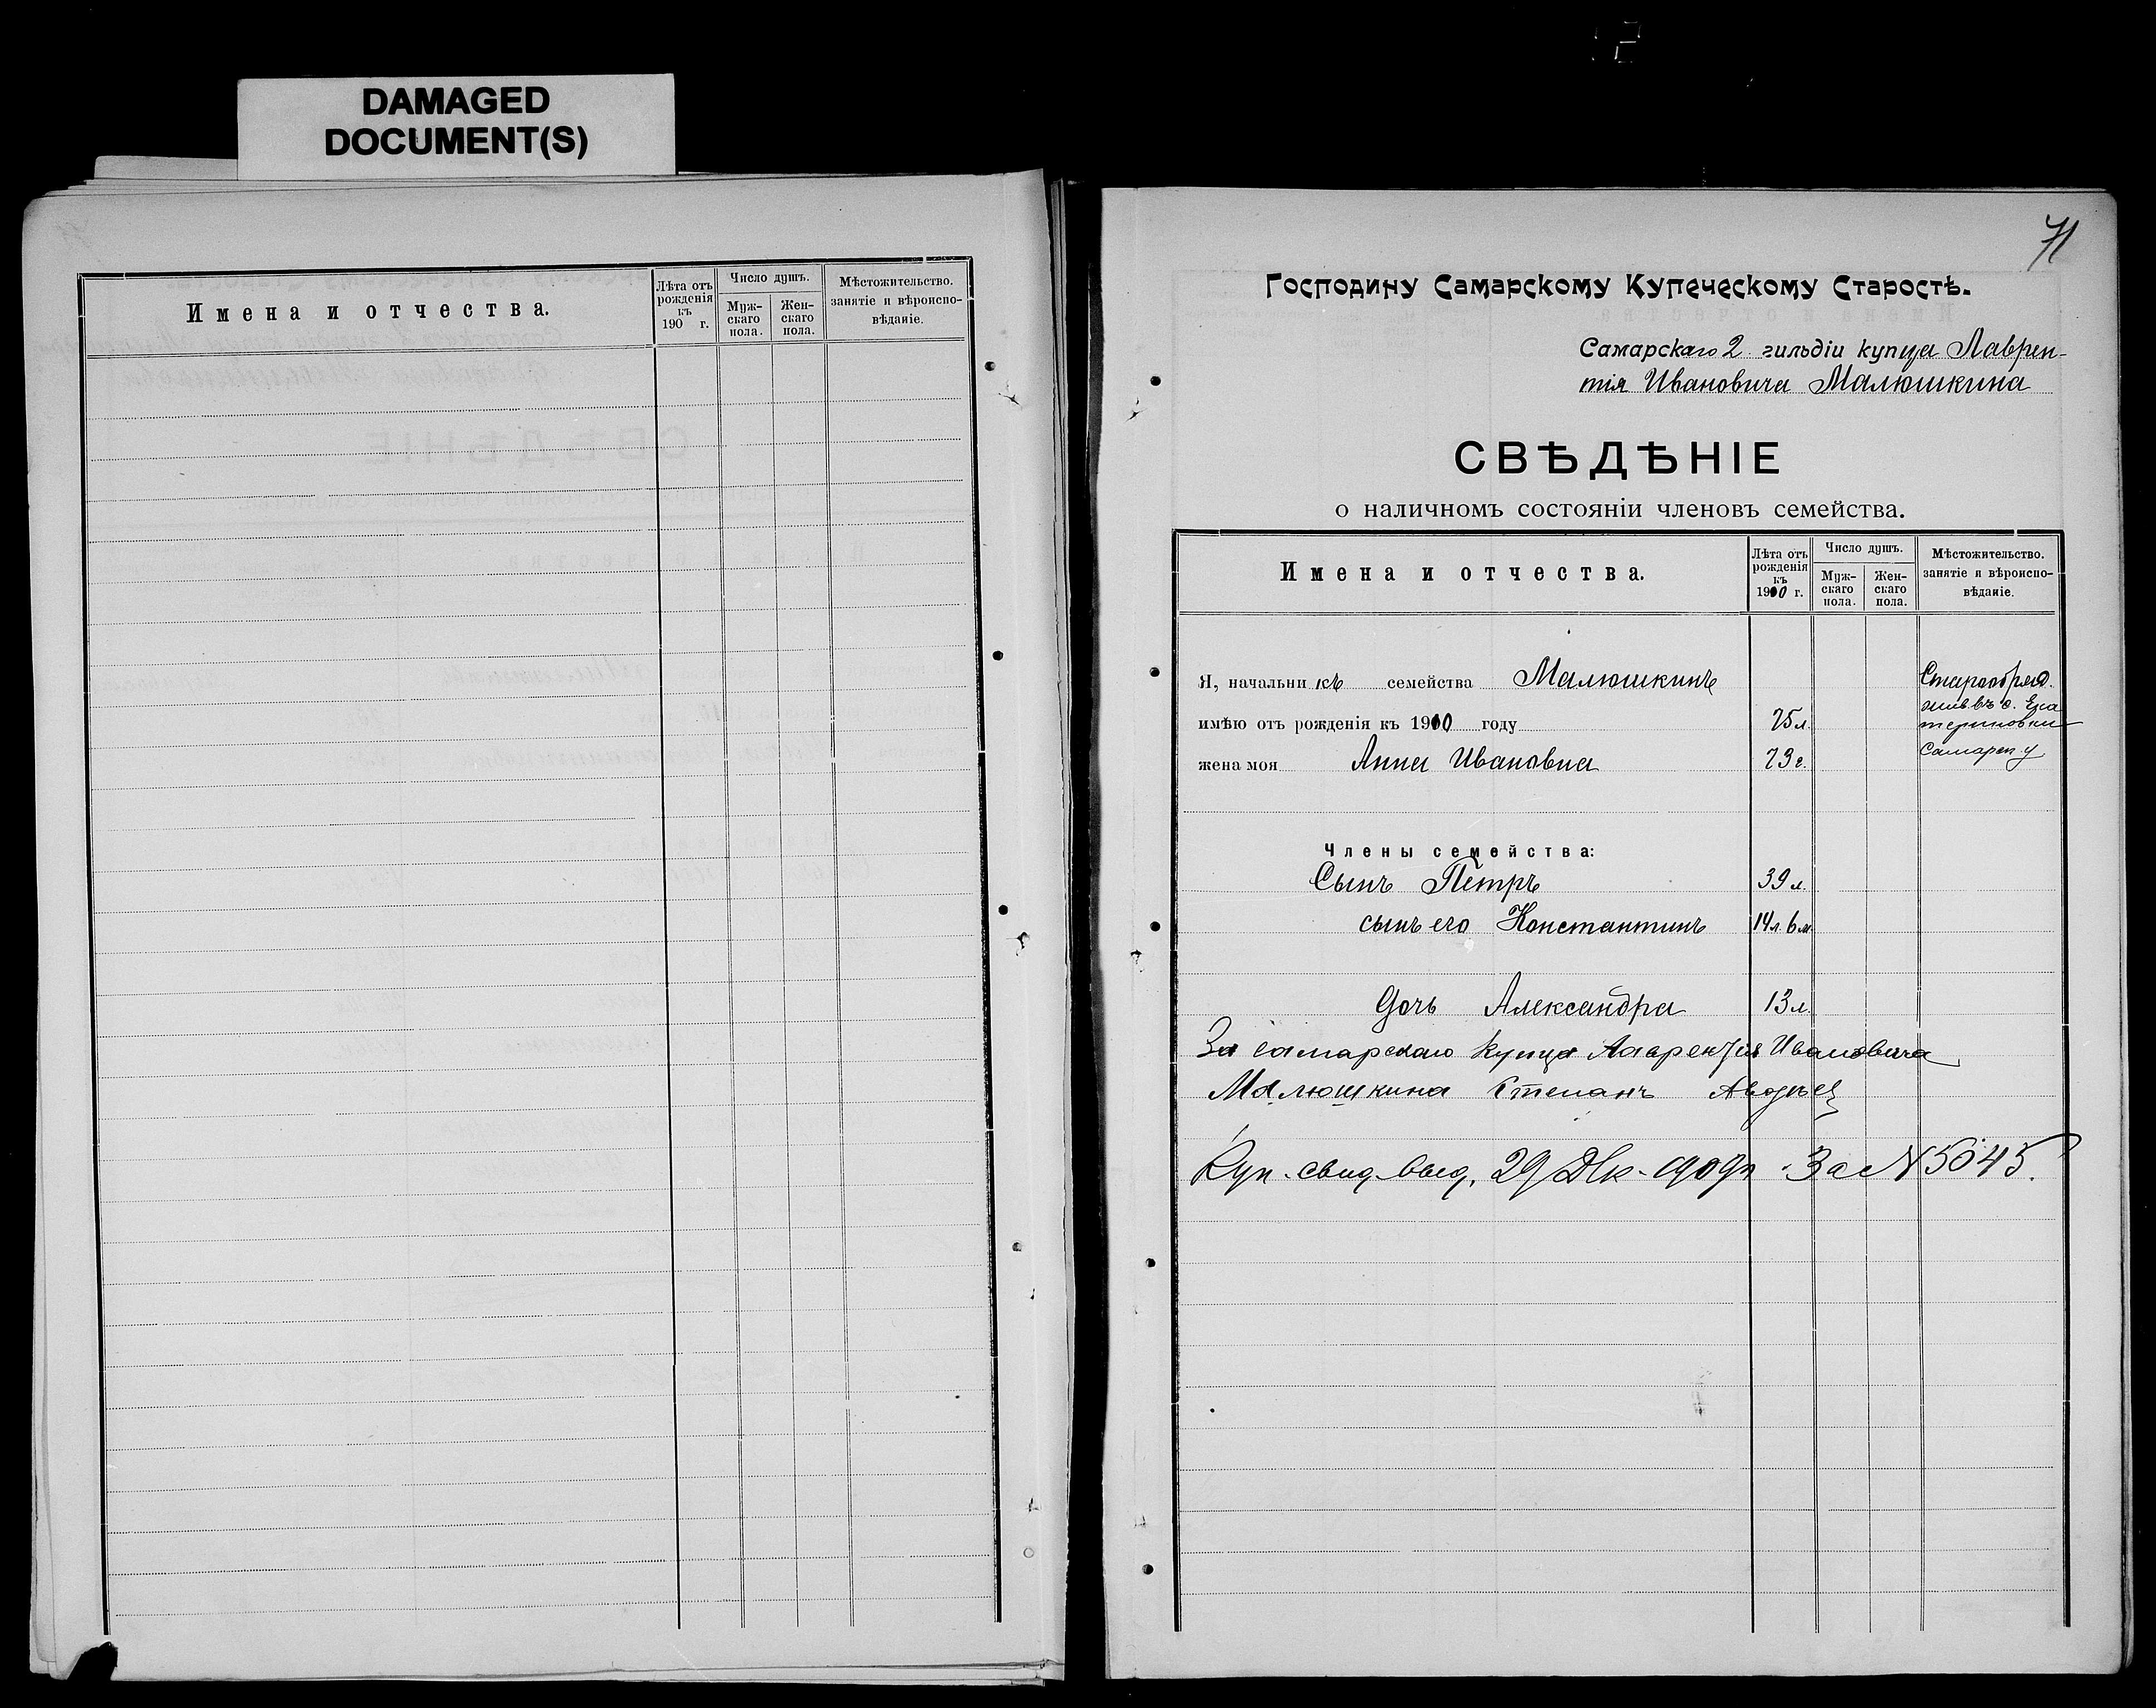 DAMAGED
DOCUMENT(S)
Имена и отчества.
Лѣта отъ рожденія къ 190 г.
Число душъ.
Муж-скаго пола.
Жен-скаго пола.
Мѣстожительство. занятіе и вѣроиспо-вѣданіе.
71
Господину Самарскому Купеческому Старостѣ.
Самарскаго 2 гильдіи купца Лаврен-
тія Ивановича Малюшкина
СВѢДѢНІЕ
о наличномъ состояніи членовъ семейства.
Имена и отчества.
Лѣта отъ рожденія къ 1910 г.
Число душъ.
Муж-скаго пола.
Жен-скаго пола.
Мѣстожительство. занятіе и вѣроиспо-вѣданіе.
Я, начальникъ семейства Малюшкинъ
Старообряд.
имѣю отъ рожденія къ 1910 году 75 л.
въ с. Ека
териновки
жена моя Анна Ивановна 73 г.
Самарск. у
Члены семейства:
Сынъ Петръ 39 л.
сынъ его Константинъ 14 л. 6 м.
Дочь Александра 13 л.
За самарскаго купца Лаврентія Ивановича
Малюшкина Степанъ
Куп. свид. выд. 29 Дек. 909 г. За № 5045.